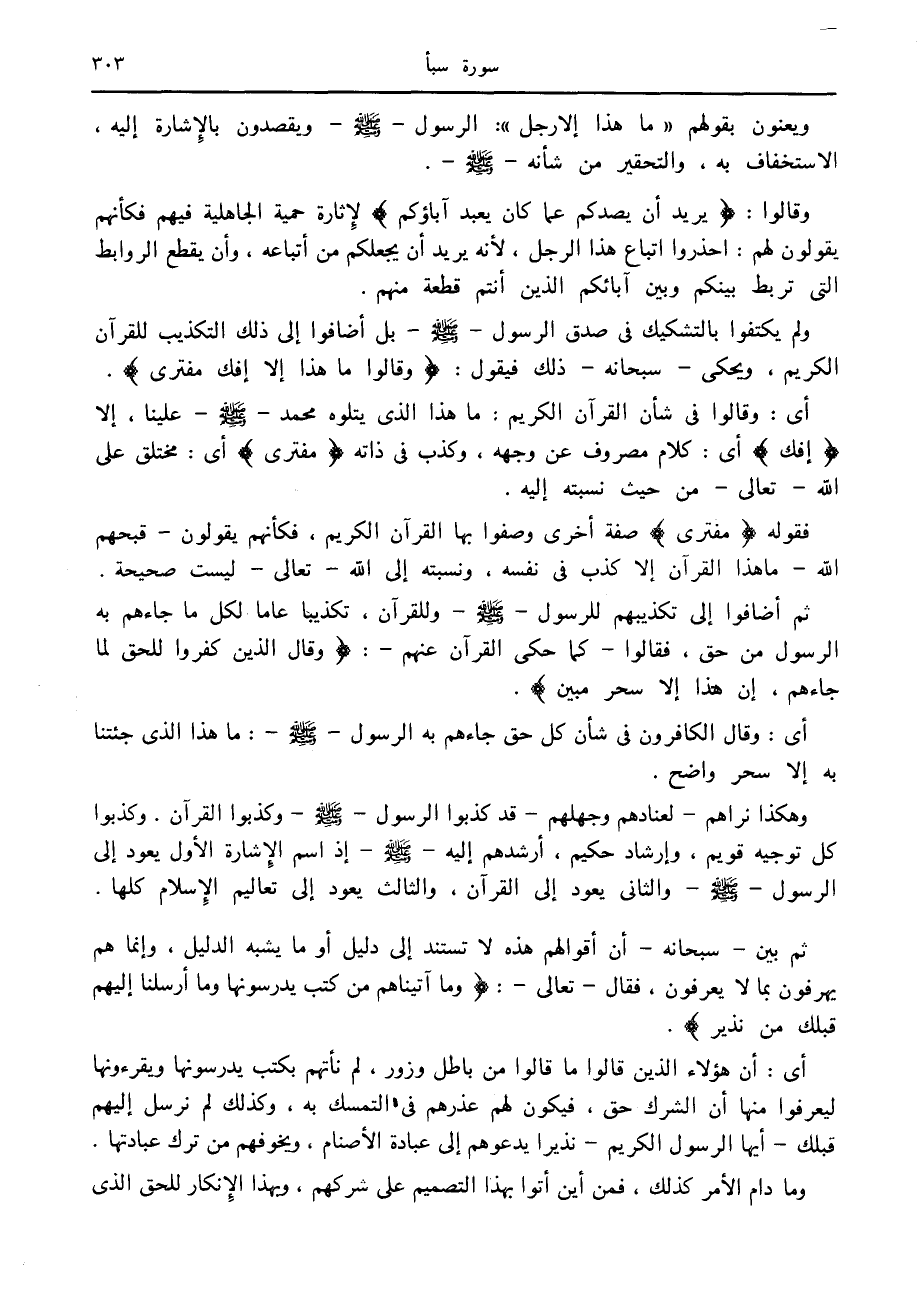 سورة سبأ ٣٠٣
ويعنون بقولهم « ما هذا إلارجل »: الرسول - ﷺ - ويقصدون بالإشارة إليه ،
الاستخفاف به ، والتحقير من شأنه - ﷺ - .
وقالوا : ﴿ يريد أن يصدكم عما كان يعبد آباؤكم ﴾ لإثارة حمية الجاهلية فيهم فكأنهم
يقولون لهم : احذروا اتباع هذا الرجل ، لأنه يريد أن يجعلكم من أتباعه ، وأن يقطع الروابط
التى تربط بينكم وبين آبائكم الذين أنتم قطعة منهم .
ولم يكتفوا بالتشكيك فى صدق الرسول - ﷺ - بل أضافوا إلى ذلك التكذيب للقرآن
الكريم ، ويحكى - سبحانه - ذلك فيقول : ﴿ وقالوا ما هذا إلا إفك مفترى ﴾ .
أى : وقالوا فى شأن القرآن الكريم : ما هذا الذى يتلوه محمد - ﷺ - علينا ، إلا
﴿ إفك ﴾ أى : كلام مصروف عن وجهه ، وكذب فى ذاته ﴿ مفترى ﴾ أى : مختلق على
الله - تعالى - من حيث نسبته إليه .
فقوله ﴿ مفترى ﴾ صفة أخرى وصفوا بها القرآن الكريم ، فكأنهم يقولون - قبحهم
الله - ماهذا القرآن إلا كذب فى نفسه ، ونسبته إلى الله - تعالى - ليست صحيحة .
ثم أضافوا إلى تكذيبهم للرسول - ﷺ - وللقرآن ، تكذيبا عاما لكل ما جاءهم به
الرسول من حق ، فقالوا - كما حكى القرآن عنهم - : ﴿ وقال الذين كفروا للحق لما
جاءهم ، إن هذا إلا سحر مبين ﴾ .
أى : وقال الكافرون فى شأن كل حق جاءهم به الرسول - ﷺ - : ما هذا الذى جئتنا
به إلا سحر واضح .
وهكذا نراهم - لعنادهم وجهلهم - قد كذبوا الرسول - ﷺ - وكذبوا القرآن . وكذبوا
كل توجيه قويم ، وإرشاد حكيم ، أرشدهم إليه - ﷺ - إذ اسم الإشارة الأول يعود إلى
الرسول - ﷺ - والثانى يعود إلى القرآن ، والثالث يعود إلى تعاليم الإسلام كلها .
ثم بين - سبحانه - أن أقوالهم هذه لا تستند إلى دليل أو ما يشبه الدليل ، وإنما هم
يهرفون بما لا يعرفون ، فقال - تعالى - : ﴿ وما آتيناهم من كتب يدرسونها وما أرسلنا إليهم
قبلك من نذير ﴾ .
أى : أن هؤلاء الذين قالوا ما قالوا من باطل وزور ، لم نأتهم بكتب يدرسونها ويقرءونها
ليعرفوا منها أن الشرك حق ، فيكون لهم عذرهم فى التمسك به ، وكذلك لم نرسل إليهم
قبلك - أيها الرسول الكريم - نذيرا يدعوهم إلى عبادة الأصنام ، ويخوفهم من ترك عبادتها .
وما دام الأمر كذلك ، فمن أين أتوا بهذا التصميم على شركهم ، وبهذا الإنكار للحق الذى